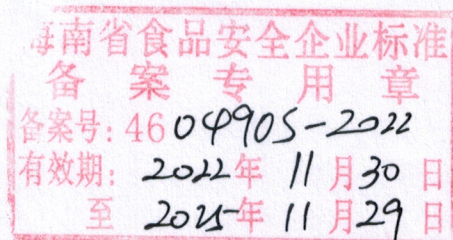 海南省食品安全企业标准
备案专用章
备案号: 46 04905-2022
有效期: 2022年 11月30日
至 2025年 11月29日